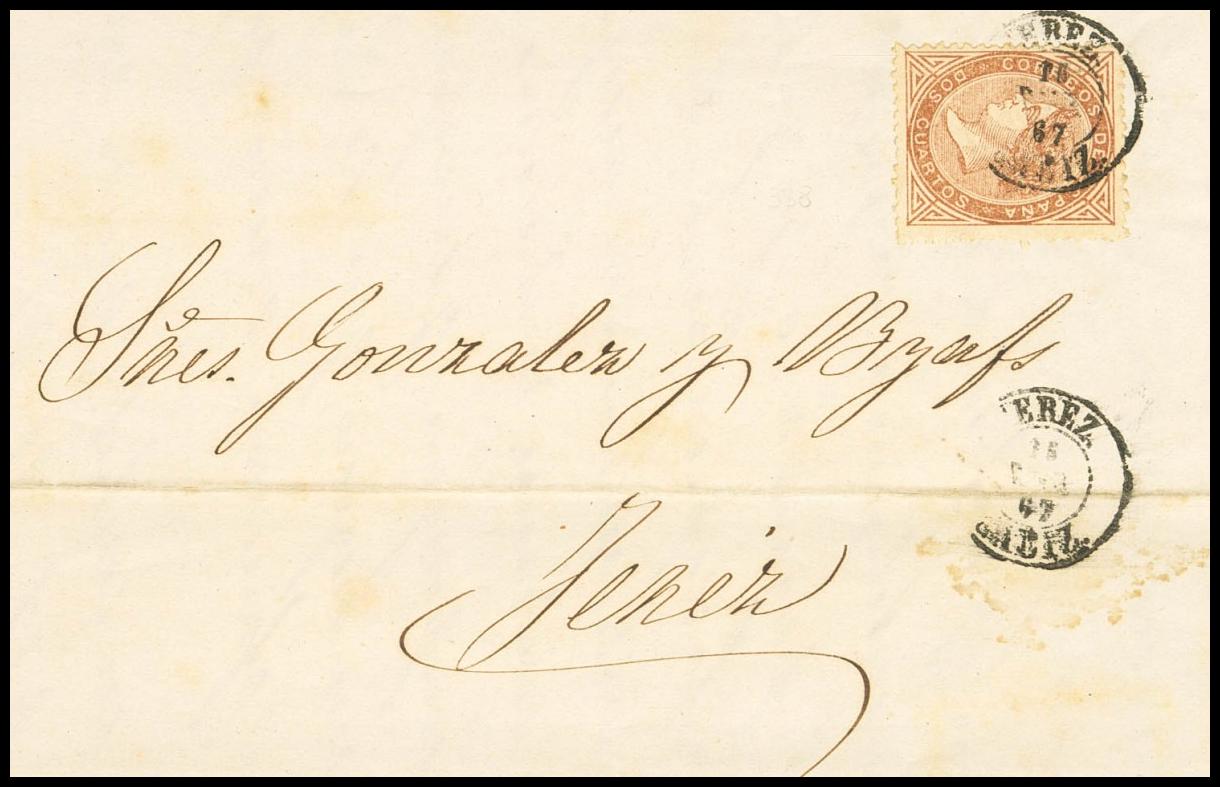 CORREOS DE ESPAÑA
DOS CUARTOS
JEREZ
67
CADIZ.
358
Sres. Gonzalez y Byass
JEREZ
67
CADIZ.
Jerez